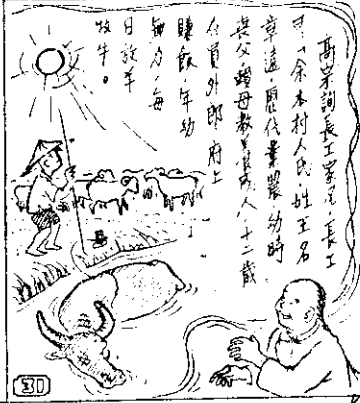 高宗詢長工家况，長工
曰：余本村人氏，姓王名
章遠，歷代業農，幼時
喪父，賴母教養成人，十二歲
在員外郎府上
賺飯，年幼
無力，每
日放羊
牧牛。
31